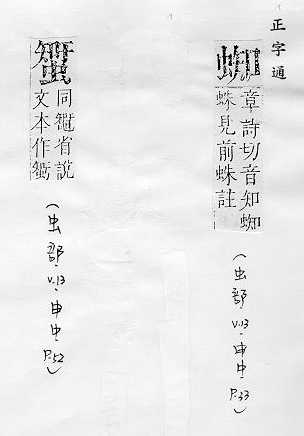 正字通
蜘
章詩切音知蜘
蛛見前蛛註
(虫部·V.13·申中·P.33)
同省說
文本作
(虫部·V.13·申中·P.52)